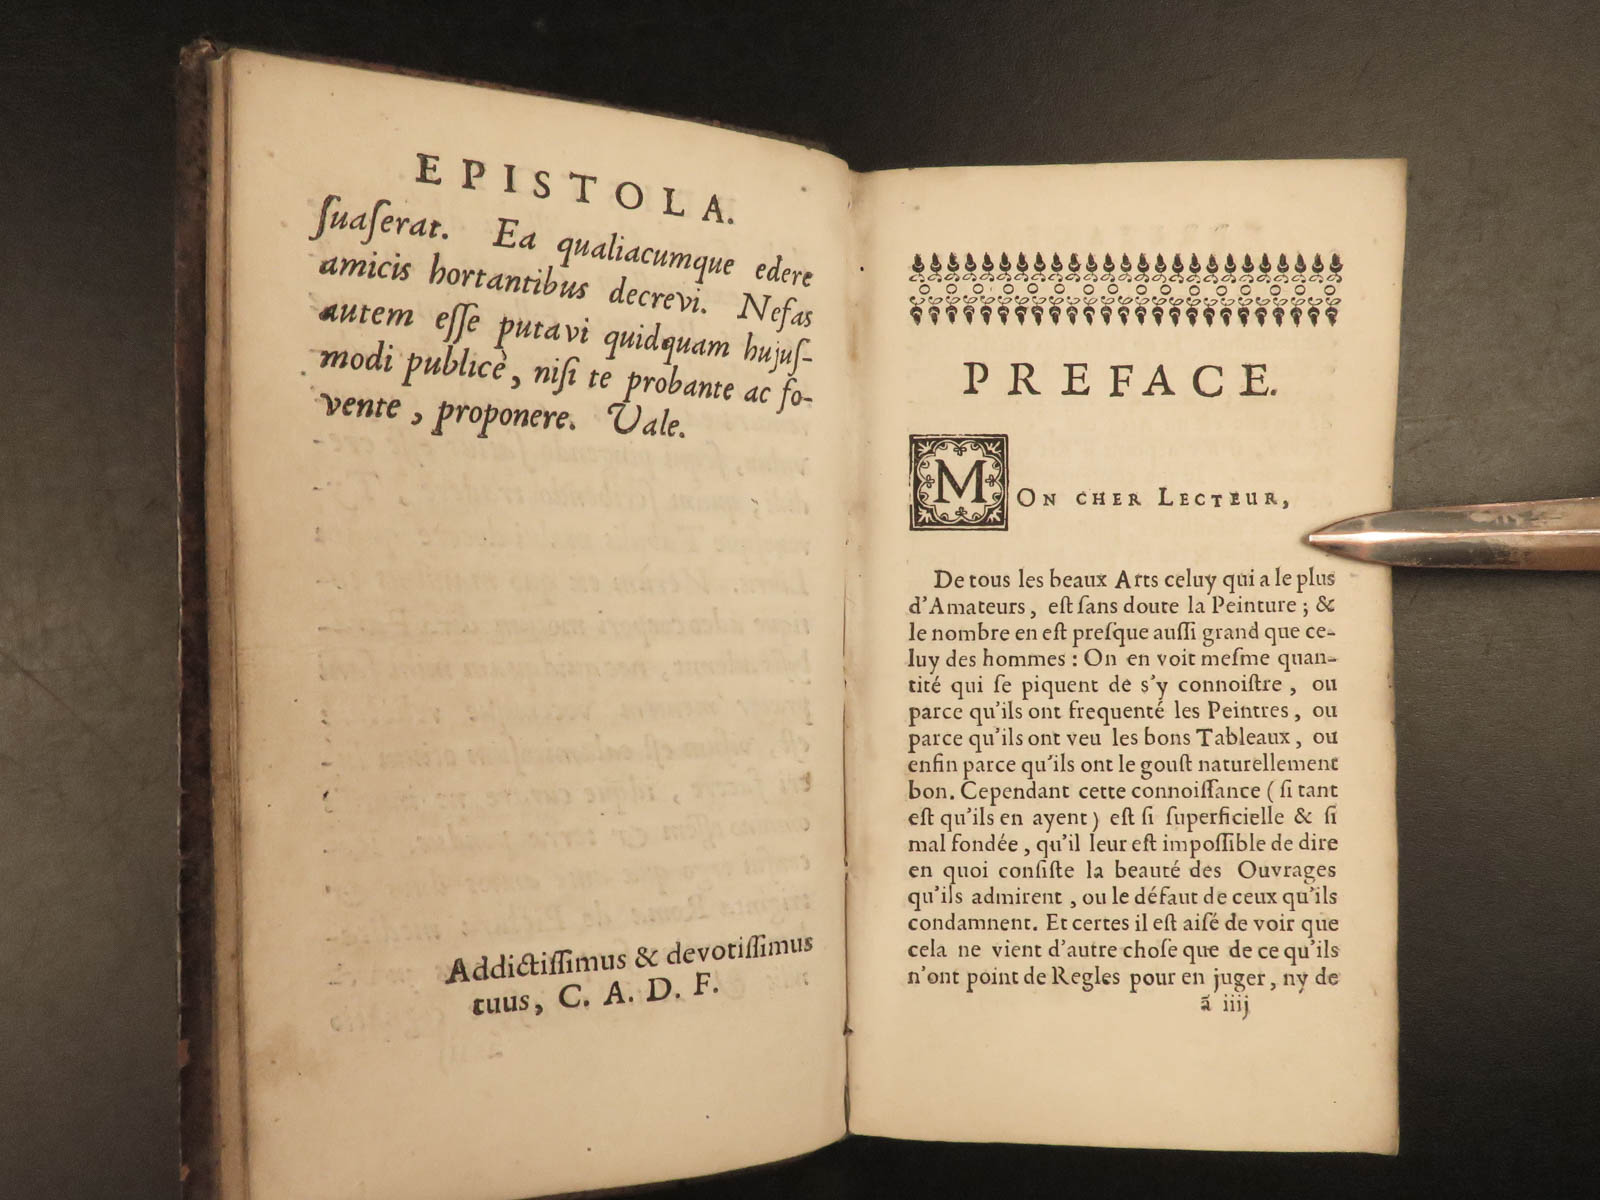 EPISTOLA.
ſuaſerat. Ea qualiacumque edere
amicis hortantibus decrevi. Nefas
autem eſſe putavi quidquam hujuſ-
modi publicè, niſi te probante ac fo-
vente, proponere. Vale.
Addictiſſimus & devotiſſimus
tuus, C. A. D. F.
PREFACE.
MON CHER LECTEUR,
De tous les beaux Arts celuy qui a le plus
d'Amateurs, eſt ſans doute la Peinture; &
le nombre en eſt preſque auſſi grand que ce-
luy des hommes: On en voit meſme quan-
tité qui ſe piquent de s'y connoiſtre, ou
parce qu'ils ont frequenté les Peintres, ou
parce qu'ils ont veu les bons Tableaux, ou
enfin parce qu'ils ont le gouſt naturellement
bon. Cependant cette connoiſſance (ſi tant
eſt qu'ils en ayent) eſt ſi ſuperficielle & ſi
mal fondée, qu'il leur eſt impoſſible de dire
en quoi conſiſte la beauté des Ouvrages
qu'ils admirent, ou le défaut de ceux qu'ils
condamnent. Et certes il eſt aiſé de voir que
cela ne vient d'autre choſe que de ce qu'ils
n'ont point de Regles pour en juger, ny de
ã iiij